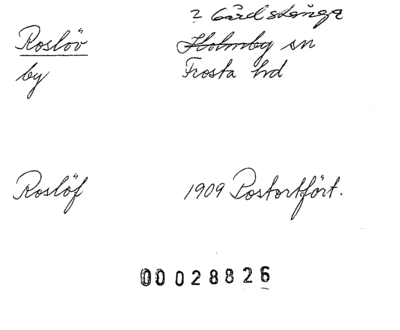 ? Gårdstånga
Roslöv Holmby sn
by Frosta hd
Roslöf 1909 Postortfört.
00028826